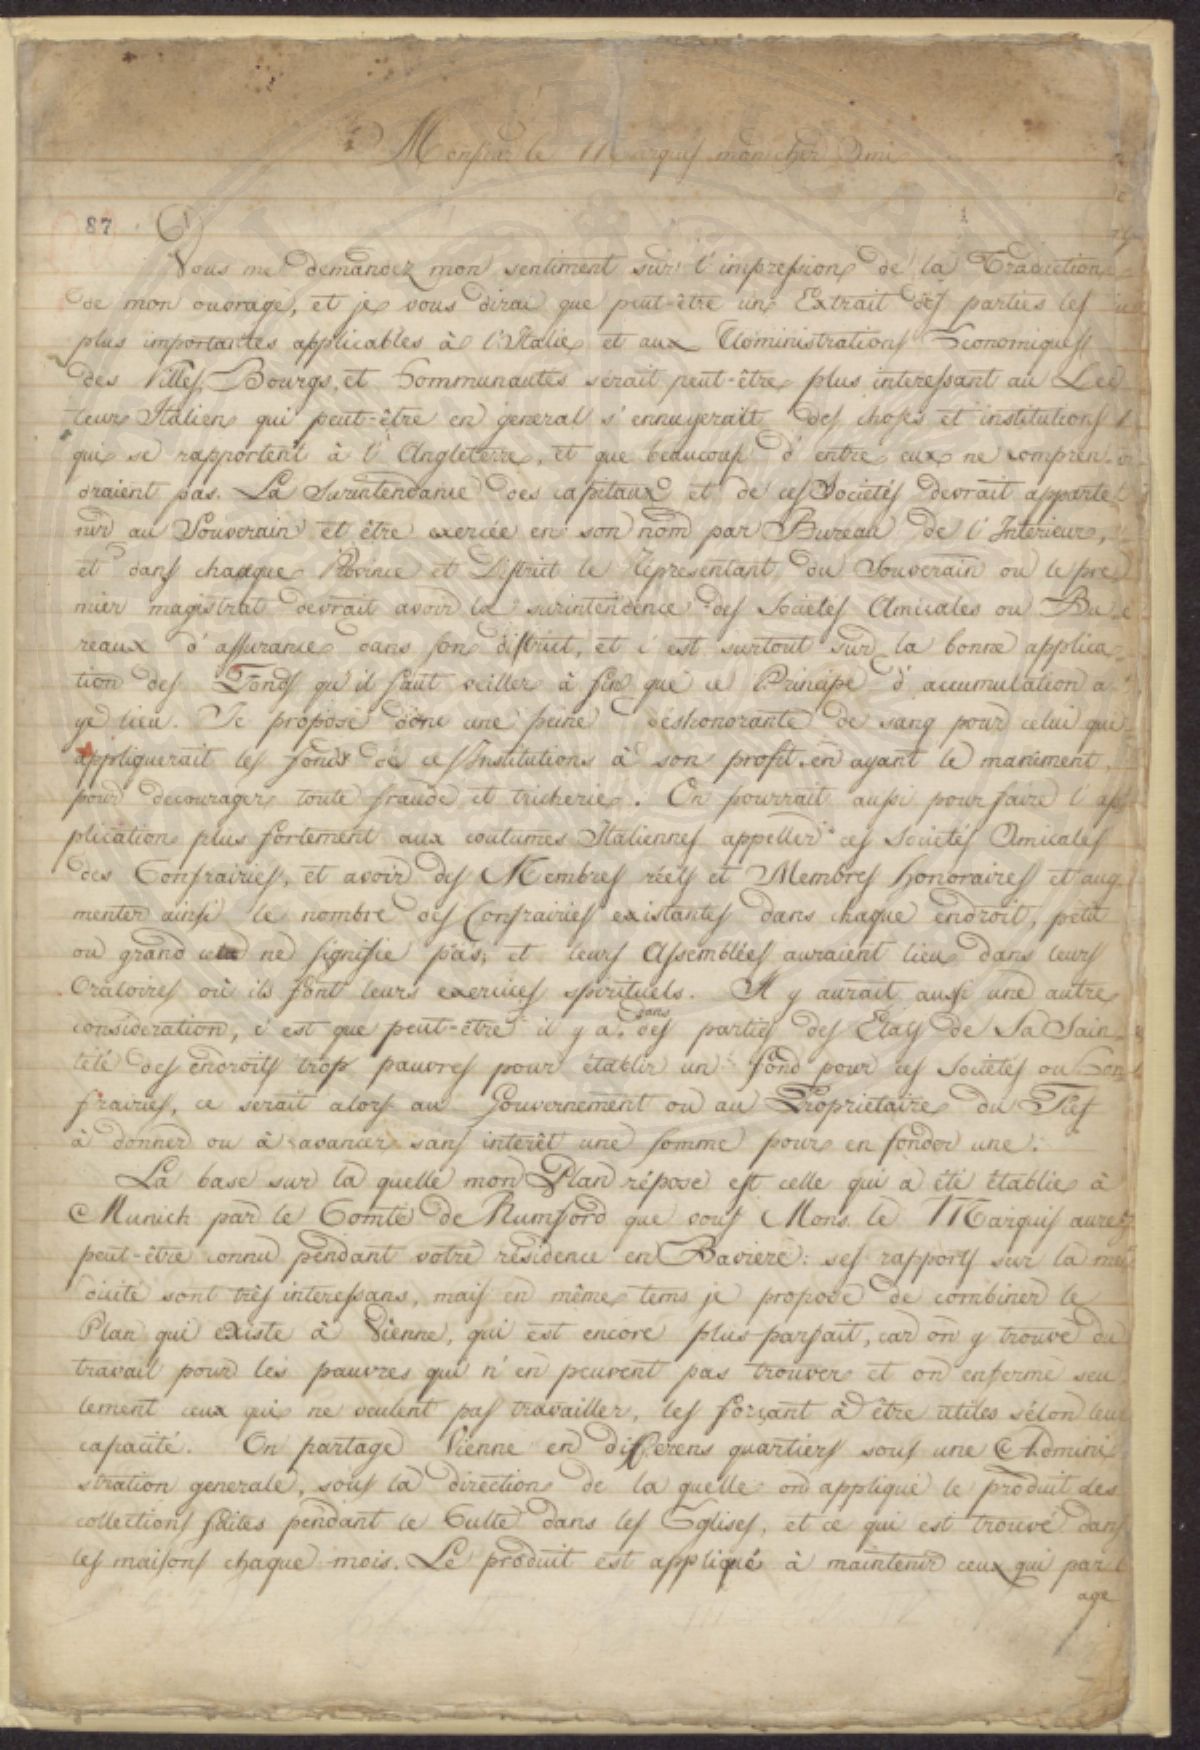 Monsieur le Marquis mon cher Ami
87
1
Vous me demandez mon sentiment sur l'impression de la Traduction
de mon ouvrage, et je vous dirai que peut-être un Extrait des parties les
plus importantes applicables à l'Italie et aux Administrations Economiques
des Villes, Bourgs, et Communautés serait peut-être plus interessant au Lec
teur Italien qui peut-être en general s'ennuyerait des choses et institutions
qui se rapportent à l'Angleterre, et que beaucoup d'entre eux ne compren-
draient pas. La Surintendance des capitaux et de ces Societés devrait apparte
nir au Souverain et être exercée en son nom par Bureau de l'Interieur,
et dans chaque Province et District le Representant du Souverain ou le pre
mier magistrat devrait avoir la surintendence des Societés Amicales ou Bu
reaux d'assurance dans son district, et c'est surtout sur la bonne applica-
tion des Fonds qu'il faut veiller à fin que ce Principe d'accumulation a
ye lieu. Je propose donc une peine déshonorante de sang pour celui qui
appliquerait les fonds de ces Institutions à son profit en ayant le maniment,
pour decourager toute fraude et tricherie. On pourrait aussi pour faire l'ap
plication plus fortement aux coutumes Italiennes appeller ces Societés Amicales
des Confrairies, et avoir des Membres réels et Membres honoraires et aug-
menter ainsi le nombre des Confrairies existantes dans chaque endroit, petit
ou grand cela ne signifie pas, et leurs Assemblées auraient lieu dans leurs
Oratoires où ils font leurs exercices spirituels. Il y aurait aussi une autre
consideration, c'est que peut-être il y a dans des parties des Etats de Sa Sain-
teté des endroits trop pauvres pour établir un fond pour ces Societés ou Con
frairies, ce serait alors au Gouvernement ou au Proprietaire du Fief
à donner ou à avancer sans interêt une somme pour en fonder une.
La base sur la quelle mon Plan répose est celle qui a été établie à
Munich par le Comte de Rumford que vous Mons. le Marquis aurez
peut-être connu pendant votre résidence en Baviere: ses rapports sur la men
dicité sont très interessans, mais en même tems je propose de combiner le
Plan qui existe à Vienne, qui est encore plus parfait, car on y trouve du
travail pour les pauvres qui n'en peuvent pas trouver et on enferme seu
lement ceux qui ne veulent pas travailler, les forçant à être utiles sélon leur
capacité. On partage Vienne en differens quartiers sous une Admini
stration generale, sous la direction de la quelle on applique le produit des
collections faites pendant le Culte dans les Eglises, et ce qui est trouvé dans
les maisons chaque mois. Le produit est appliqué à maintenir ceux qui par l'
age